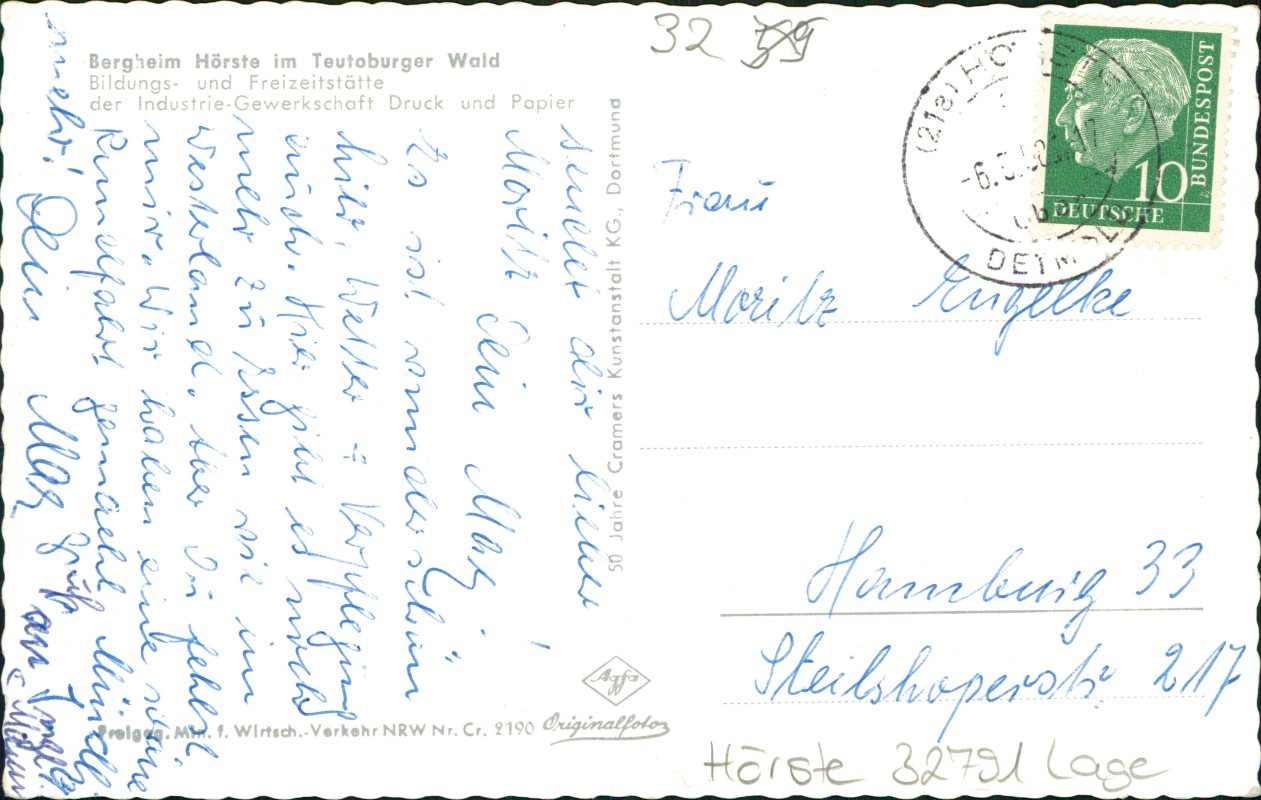 Bergheim Hörste im Teutoburger Wald
Bildungs- und Freizeitstätte
der Industrie-Gewerkschaft Druck und Papier
32
sendet dir lieber
Moritz Dein Max!
Es ist wunderschön
hier, Wetter = Verpflegung
auch. Hier gibt es noch
mehr zu Essen wie im
Westerland. Aber Du fehlst
mir. Wir haben eine schöne
gemacht. Mündl.
mehr! Dein Max
Gruß an
50 Jahre Cramers Kunstanstalt KG., Dortmund
(218) HO
-6.5. -17
DETM
10
DEUTSCHE
BUNDESPOST
Frau
Moritz Engelke
Hamburg 33
Steilshoperstr. 217
Agfa
Originalfoto
Freigeg. Min. f. Wirtsch.-Verkehr NRW Nr. Cr. 2190
Hörste 32791 Lage